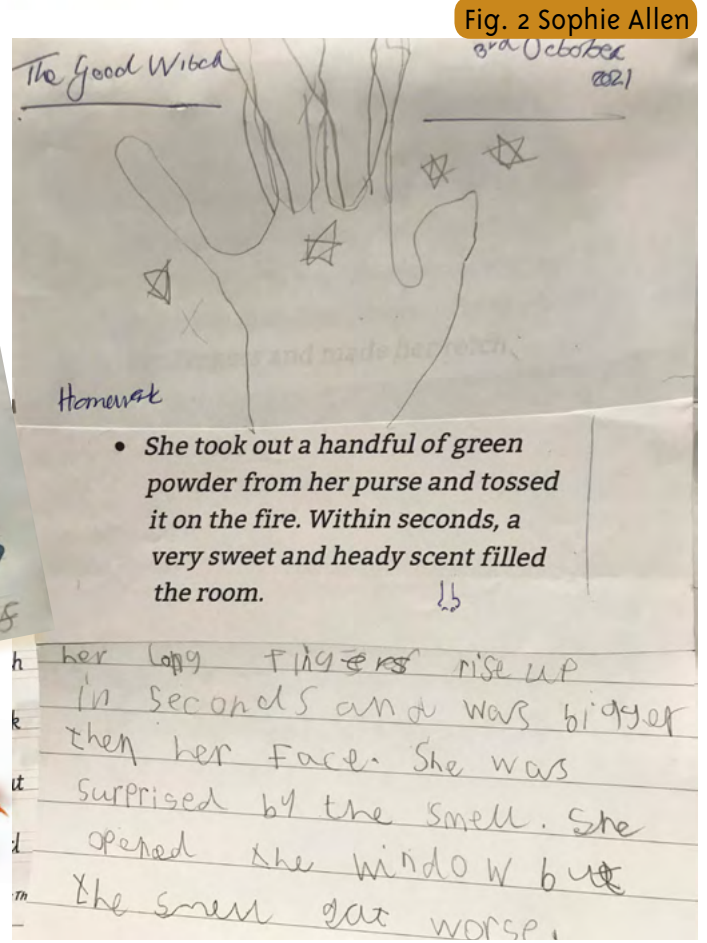 Fig. 2 Sophie Allen
The Good Witch
3rd October
2021
Homework
• She took out a handful of green
powder from her purse and tossed
it on the fire. Within seconds, a
very sweet and heady scent filled
the room.
her long fingers rise up
in seconds and was bigger
then her Face. She was
surprised by the smell. She
opened the window but
the smell got worse.